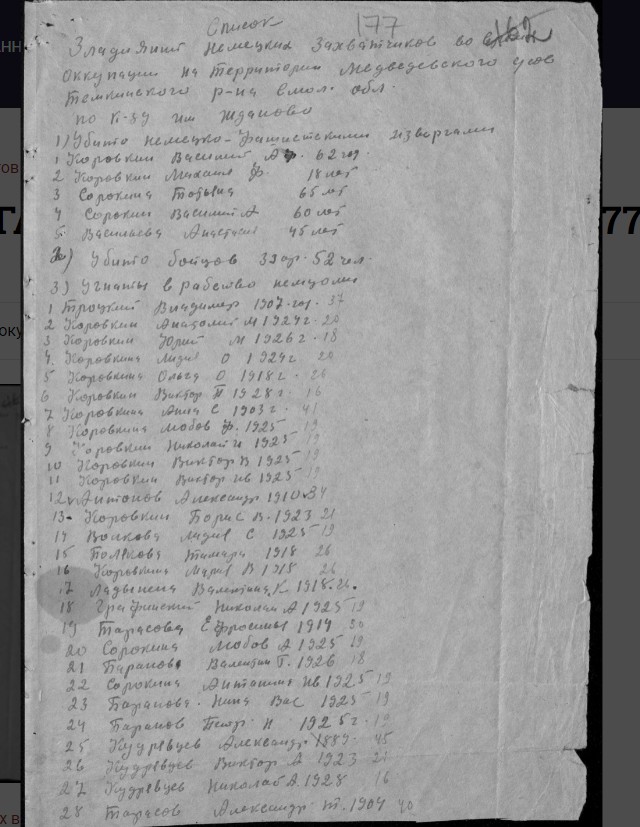 Список 177
Злодеяний немецких захватчиков во
оккупации на территории Медведевского
Темкинского р-на Смол. обл.
по к-зу им Жданова
1) Убито немецко-фашистскими извергами
1 Коровкин Василий 62 год.
2 Коровкин Михаил Ф. 18 лет
3 Сорокина Татьяна 65 лет
4 Сорокин Василий А 60 лет
5 Васильева Анастасия 45 лет
2) Убито бойцов 52 чел.
3) Угнаты в рабство немцами
1 Троцкий Владимир 1907 год. 37
2 Коровкин Анатолий М 1924 г. 20
3 Коровкин Юрий М 1926 г. 18
4. Коровкина Лидия О 1924 г. 20
5 Коровкина Ольга О 1918 г. 26
6 Коровкин Виктор П 1928 г. 16
7 Коровкина Анна С 1903 г. 41
8 Коровкина Любов Ф. 1925 19
9 Коровкин Николай И 1925 19
10 Коровкин Виктор В 1925 19
11 Коровкин Виктор Ив 1925 19
12 Антонов Александр 1910 34
13 Коровкин Борис В. 1923 21
14 Волкова Лидия С 1925 19
15 Полякова Тамара 1918 26
16 Коровкина Мария В 1918 26
17 Ладынина Валентина К 1918. 26.
18 Николай А 1925 19
19 Тарасова Ефросинья 1914 30
20 Сорокина Любов А 1925 19
21 Баранова Валентин Г. 1926 18
22 Сорокина Антонина Ив 1925 19
23 Баранова. Нина Вас 1925 19
24 Баранов Петр Н 1925 г. 19
25 Кудрявцев Александр 1889. 45
26 Кудрявцев Виктор А 1923 21
27 Кудрявцев Николай А. 1928 16
28 Тарасов Александр Т. 1904 40
77